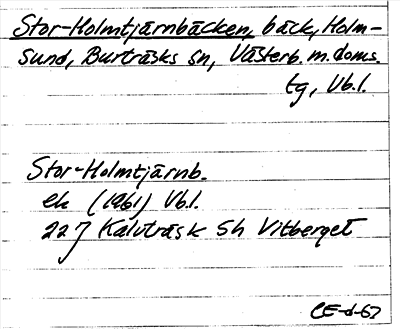 Stor-Holmtjärnbäcken, bäck, Holm-
sund, Burträsks sn, Västerb. m. doms.
tg, Vb. l.
Stor-Holmtjärnb.
ek (1961) Vb. l.
22 J Kalvträsk Sh Vitberget
CE-d-67